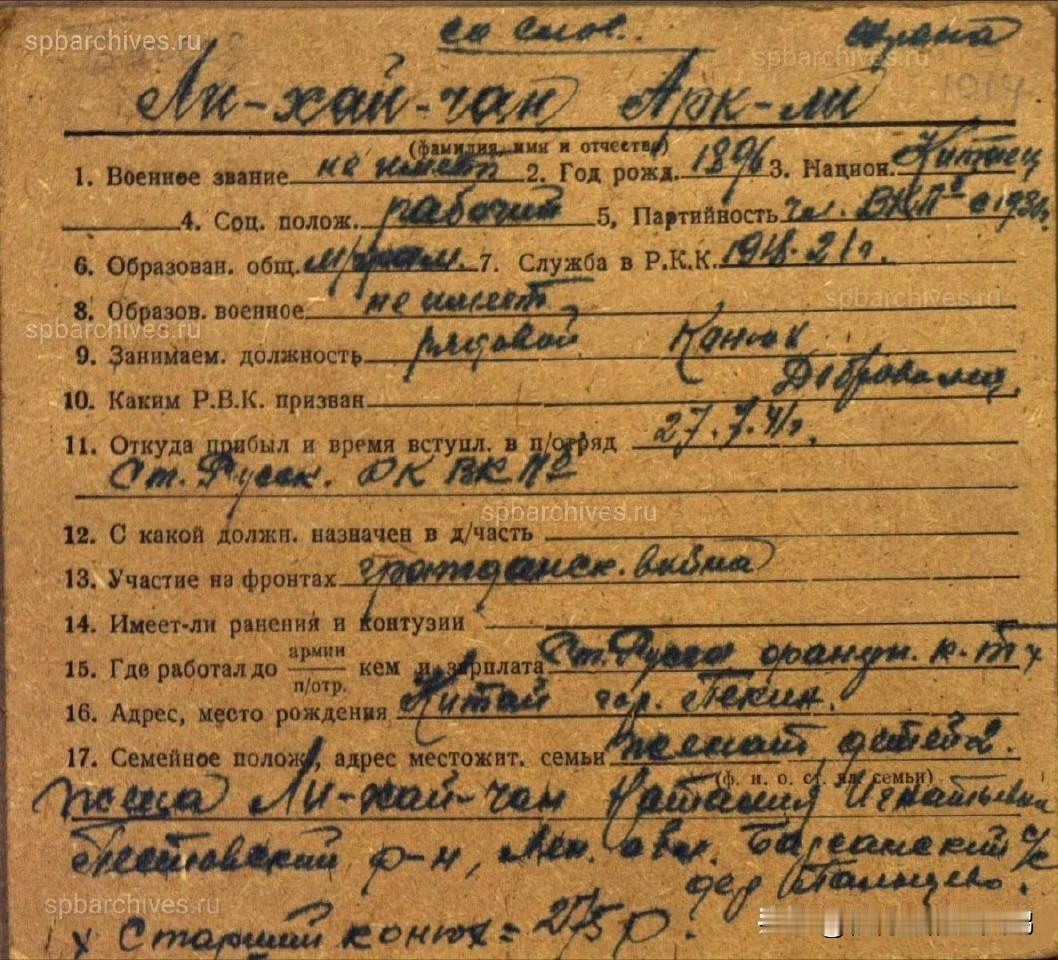 spbarchives.ru
со слов. охрана
spbarchives.ru
Ли-хай-чан Арк-ли 1014
(фамилия, имя и отчество)
1. Военное звание не имеет 2. Год рожд. 1896 3. Национ. Китаец
4. Соц. полож. рабочий 5, Партийность чл. ВКПб с 1930г.
6. Образован. общ. м/грам. 7. Служба в Р.К.К. 1918-21г.
spbarchives.ru
8. Образов. военное не имеет
spbarchives.ru
9. Занимаем. должность рядовой Конюх
10. Каким Р.В.К. призван Доброволец.
11. Откуда прибыл и время вступл. в п/отряд 27.7.41г.
Ст. Русск. РК ВКПб
spbarchives.ru
12. С какой должн. назначен в д/часть
13. Участие на фронтах гражданск. война
14. Имеет-ли ранения и контузии
15. Где работал до армии/п/отр. кем и зарплата Ст. Русса к-т х
16. Адрес, место рождения Китай гор. Пекин.
17. Семейное полож, адрес местожит. семьи женат, детей 2.
(ф. и. о. ст. чл. семьи)
жена Ли-хай-чан Наталия Игнатьевна
Пестовский р-н, Лен. обл. с/с
spbarchives.ru
дер
х Старший конюх = 275 р.